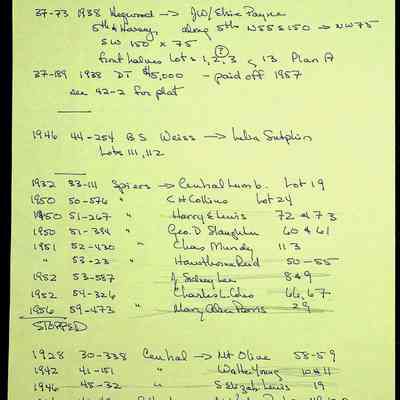 37-73 1938 Hegwood → JW/Elsie Payne
5th & Harvey, along 5th N55 S150 → NW75
SW 150 x 75
first halves Lots 1, 2, 3 ? 13 Plan 17
37-189 1938 DT $5,000 - paid off 1957
see 42-2 for plat
1946 44-254 BS Weiss → Lelia Sutphin
Lots 111, 112
1932 33-111 Spiers → Central Lumb. Lot 19
1950 50-576 " CH Collins Lot 24
1950 51-267 " Harry E Lewis 72 & 73
1950 51-394 " Geo. D Slaughter 60 & 61
1951 52-430 " Chas Mundy 113
" 53-23 " Hawthorne Reid 50-55
1952 53-587 J. Sidney Lee 8 & 9
1952 54-326 Charles L. Coleo 66, 67
1956 59-473 " Mary Ellen Parris 29
STOPPED
1928 30-338 Central → Mt Olive 58-59
1942 41-151 " Walter Young 10 & 11
1946 45-32 " S Elizah Lewis 19